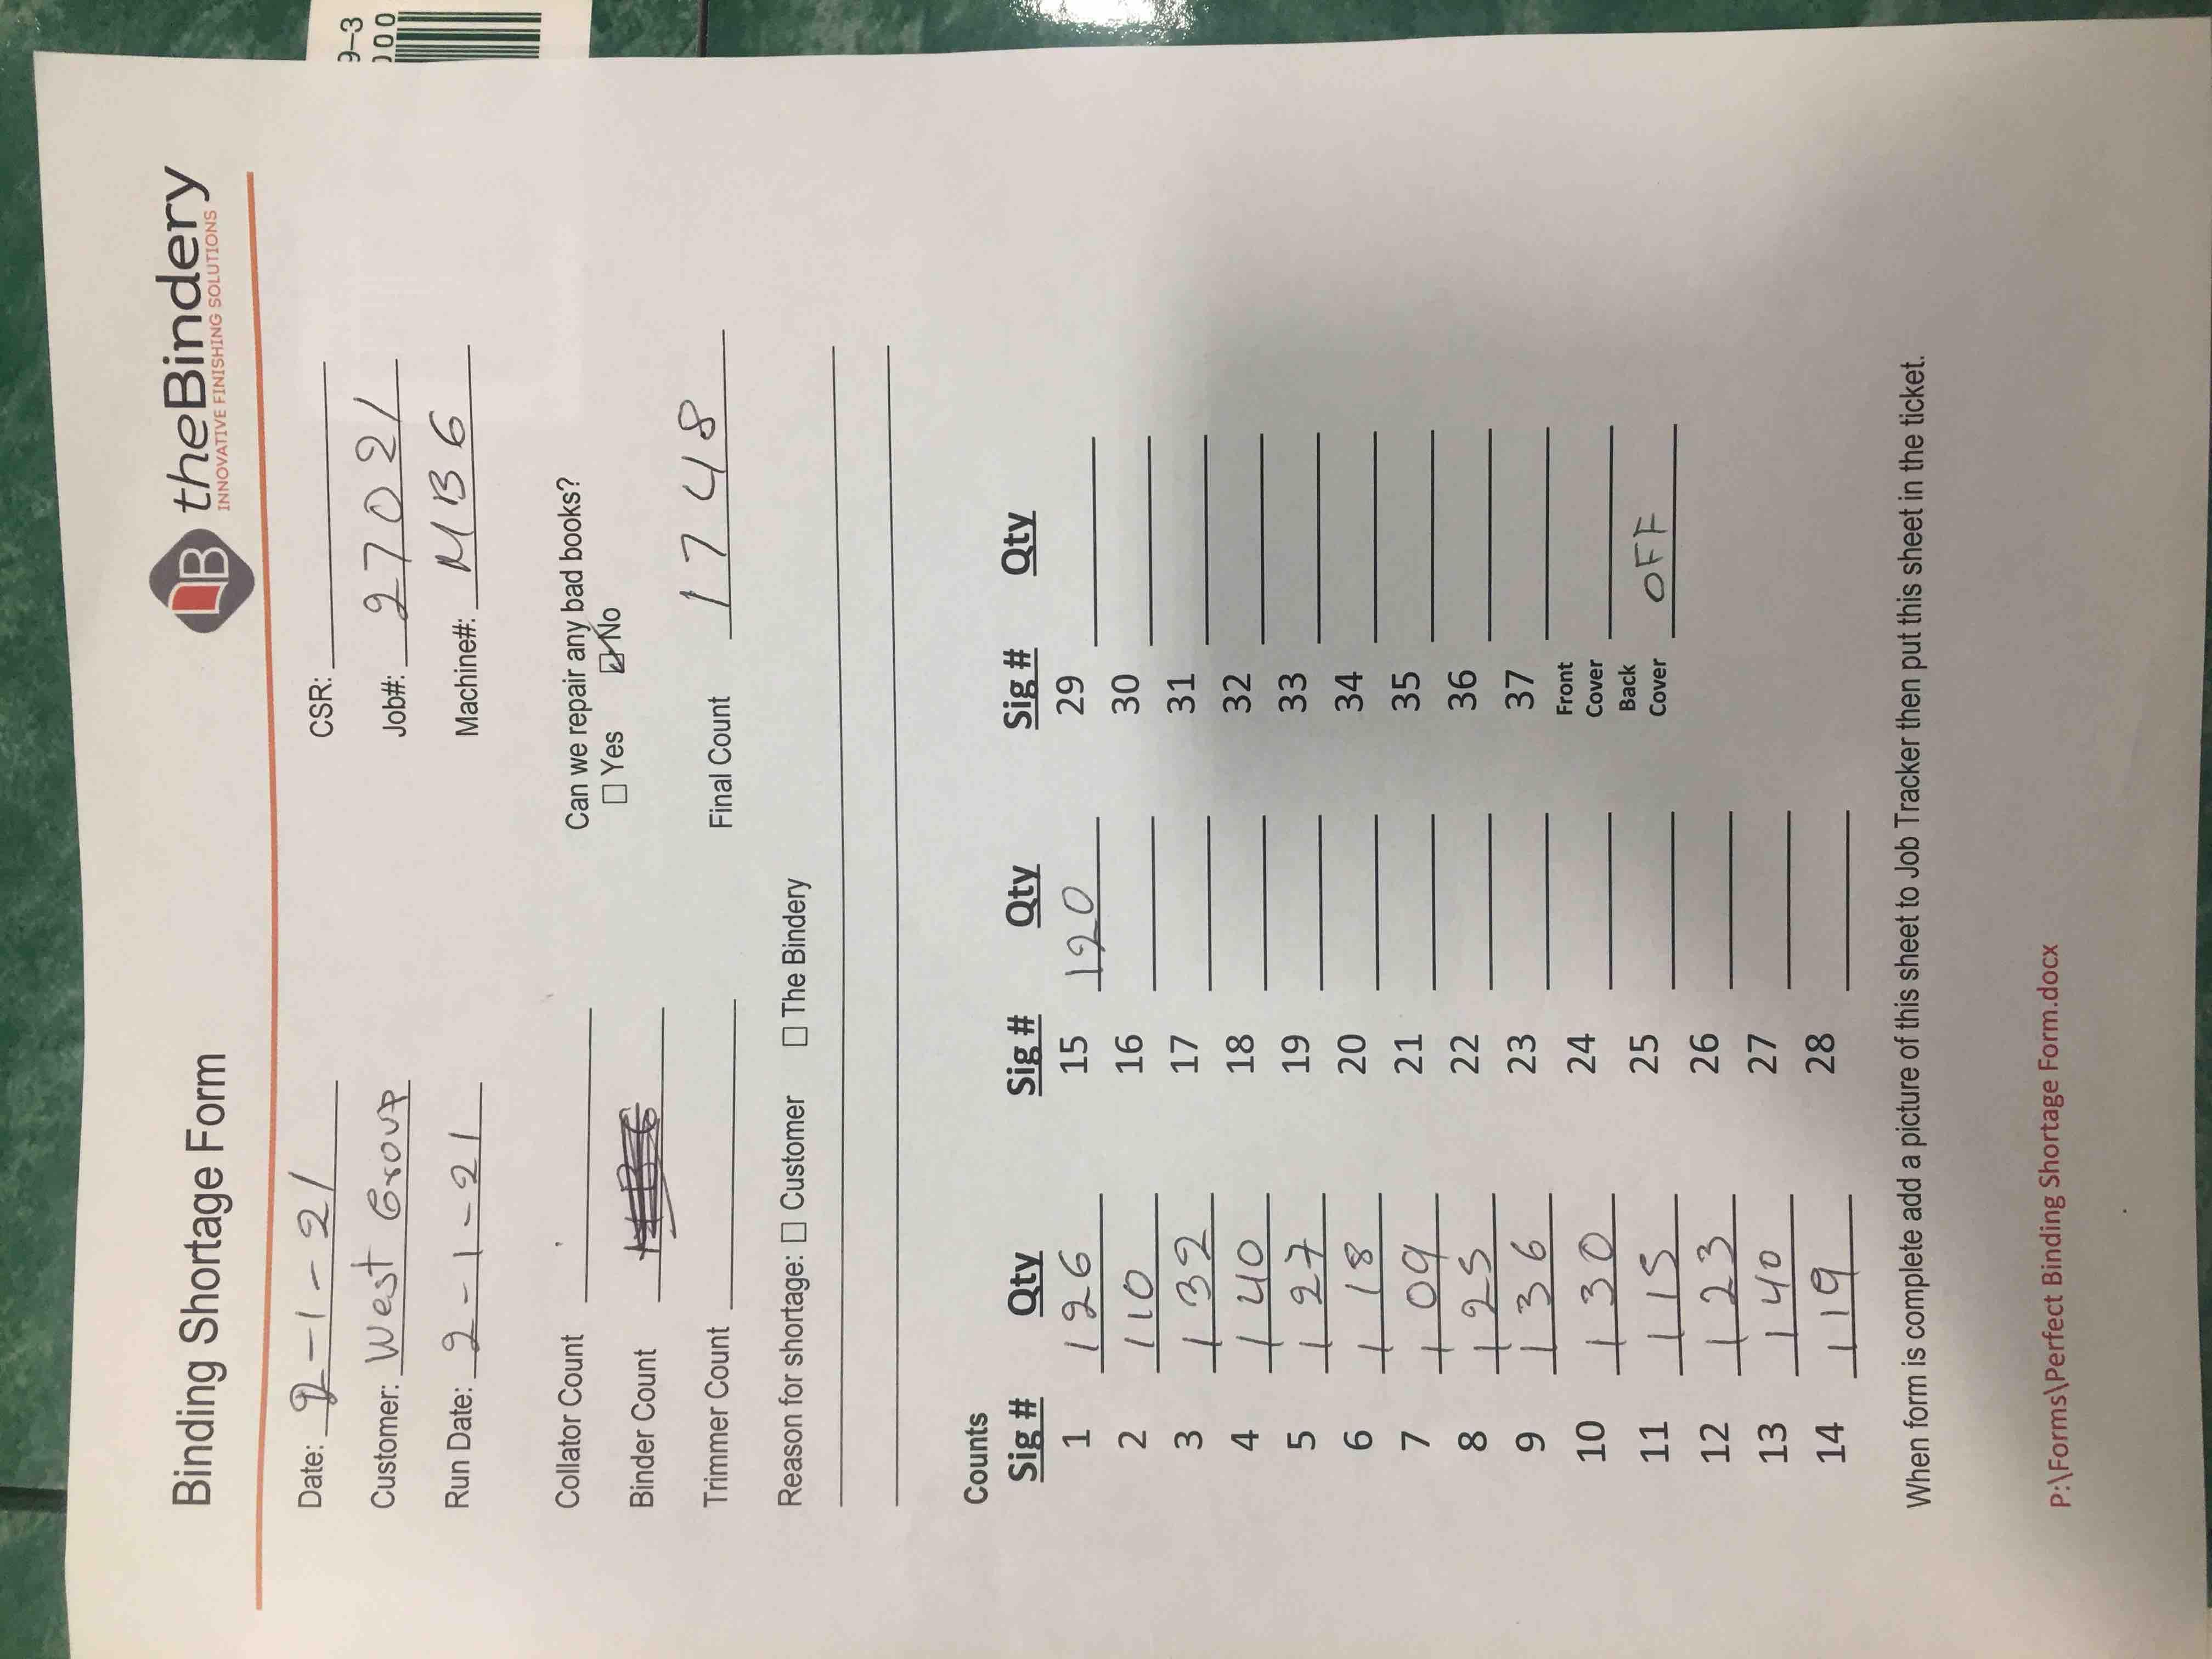 9-3
000
theBindery
INNOVATIVE FINISHING SOLUTIONS
Binding Shortage Form
Date: 2-1-21 CSR:
Customer: West Group Job#: 27021
Run Date: 2-1-21 Machine#: MB6
Collator Count Can we repair any bad books?
☐ Yes ☑ No
Binder Count
Trimmer Count Final Count 1748
Reason for shortage: ☐ Customer ☐ The Bindery
Counts
Sig # Qty Sig # Qty Sig # Qty
1 126 15 120 29
2 110 16 30
3 132 17 31
4 140 18 32
5 127 19 33
6 118 20 34
7 109 21 35
8 125 22 36
9 136 23 37
10 130 24 Front Cover
11 115 25 Back Cover OFF
12 123 26
13 140 27
14 119 28
When form is complete add a picture of this sheet to Job Tracker then put this sheet in the ticket.
P:\Forms\Perfect Binding Shortage Form.docx